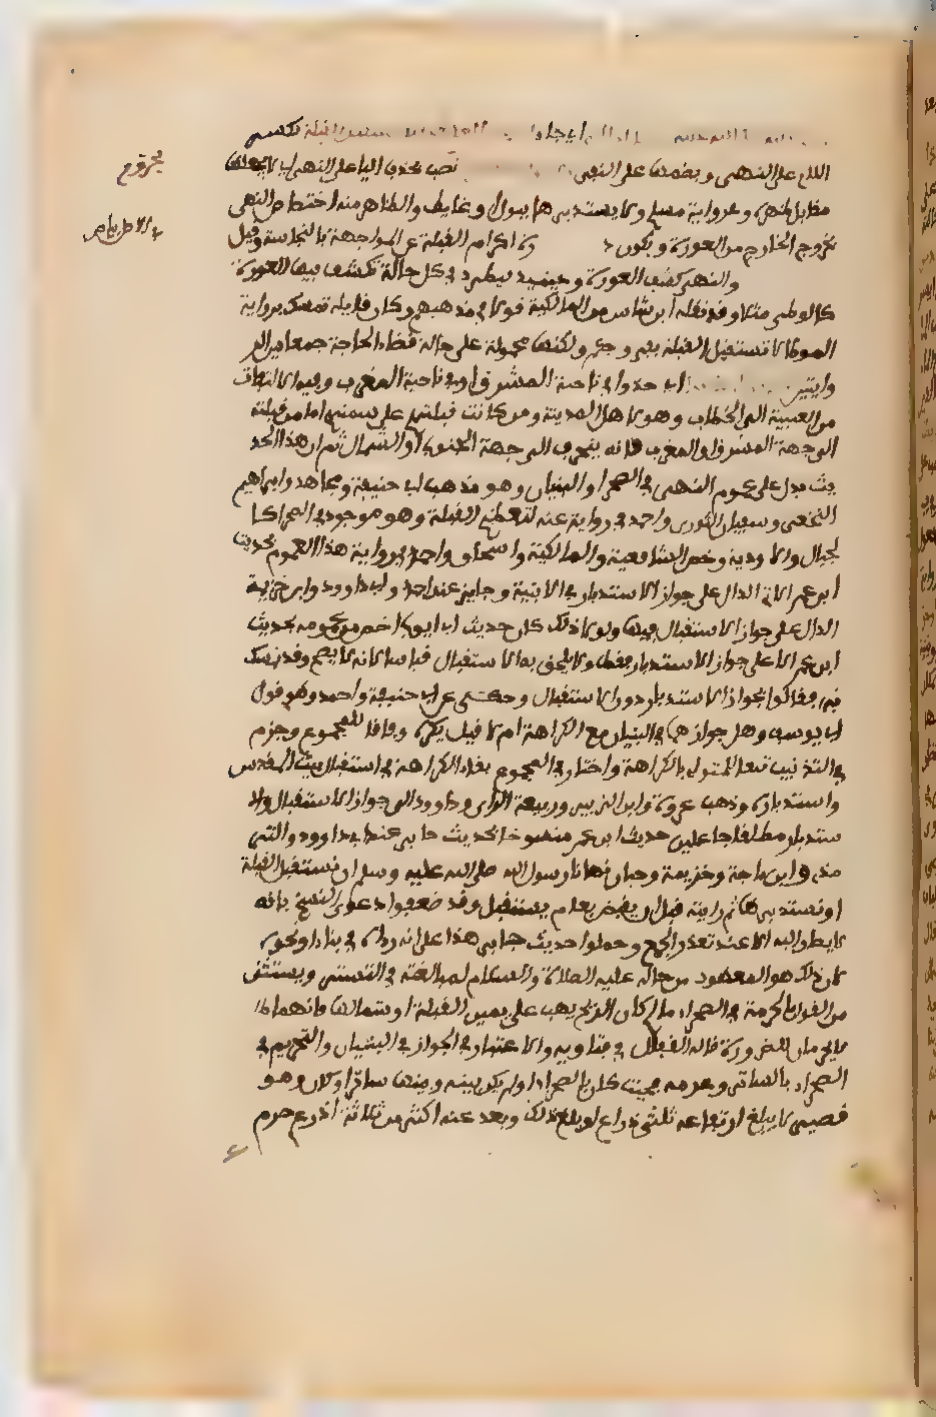 القبلة بكسر
اللام على النهي وبضمها على النفي نصب بحذف اليا على النهي اي لا يجعلها
مقابل ظهره وعرواية مسلم ولا يستدبرها ببول او غايط والظاهر منه اختصاص النهي
بخروج الخارج من العورة ويكون اكرام القبلة عن المواجهة بالنجاسة وقيل
والنهي كشف العورة وحينيذ يطرد في كل حالة تكشف فيها العورة
كالوطي مثلا وقد نقله ابن شاس من المالكية قولا في مذهبهم وكان قايله تمسك برواية
الموطا لا تستقبل القبلة بفروجكم ولكنها محمولة على حالة قضاء الحاجة جمعا بين الر
وايتين اي خذوا في ناحية المشرق او في ناحية المغرب وفيه الالتفات
من الغيبة الى الخطاب وهو لاهل المدينة ومن كانت قبلتهم على سمتهم اما من قبلته
الى جهة المشرق او المغرب فانه ينحرف الى جهة الجنوب او الشمال ثم ان هذا الحد
يث يدل على عموم النهي في الصحرا والبنيان وهو مذهب ابي حنيفة ومجاهد وابراهيم
النخعي وسفيان الثوري واحمد في رواية عنه لتعظيم القبلة وهو موجود في الصحرا كا
لجبال والاودية وخص الشافعية والمالكية واسحاق واحمد في رواية هذا العموم بحديث
ابن عمر الاتي الدال على جواز الاستدبار في الابنية وجابر عند احمد وابي داوود وابن خزيمة
الدال على جواز الاستقبال فيها ولولا ذلك كان حديث ابي ايوب لا خص من عمومه بحديث
ابن عمر الا على جواز الاستدبار فقط ولا يلحق به الاستقبال قياسا لانه لا يصح وقد تمسك
به فقالوا بجواز الاستدبار دون الاستقبال وحكي عن ابي حنيفة واحمد وهو قول
ابي يوسف وهل جوازهما في البنيان مع الكراهة ام لا قيل يكره وفاقا للمجموع وجزم
في التذنيب تبعا للمتولي بالكراهة واختار في المجموع بقاء الكراهة في استقبال بيت المقدس
واستدباره وذهب عروة وابن الزبير وربيعة الراي وداوود الى جواز الاستقبال والا
ستدبار مطلقا جاعلين حديث ابن عمر منسوخا بحديث جابر عند ابي داوود والتر
مذي وابن ماجة وخزيمة وحبان نهانا رسول الله صلى الله عليه وسلم ان نستقبل القبلة
او نستدبرها ثم رايته قبل ان يقبض بعام يستقبل وقد ضعفوا دعوى النسخ بانه
لا يصار اليه الا عند تعذر الجمع وحملوا حديث جابر هذا على انه راه في بناء او نحوه
لان ذلك هو المعهود من حاله عليه الصلاة والسلام لمبالغته في التستر ويستثنى
من القول بالحرمة في الصحراء ما لو كان الريح يهب على يمين القبلة او شمالها فانهما
لا يحرمان للضرورة قاله القفال في فتاويه والاعتبار في الجواز في البنيان والتحريم في
الصحراء بالساتر وعدمه فحيث كان بالصحراء ولم يكن بينه وبينها ساتر او كان وهو
قصير لا يبلغ ارتفاعه ثلثي ذراع او بلغ ذلك وبعد عنه اكثر من ثلاثة اذرع حرم